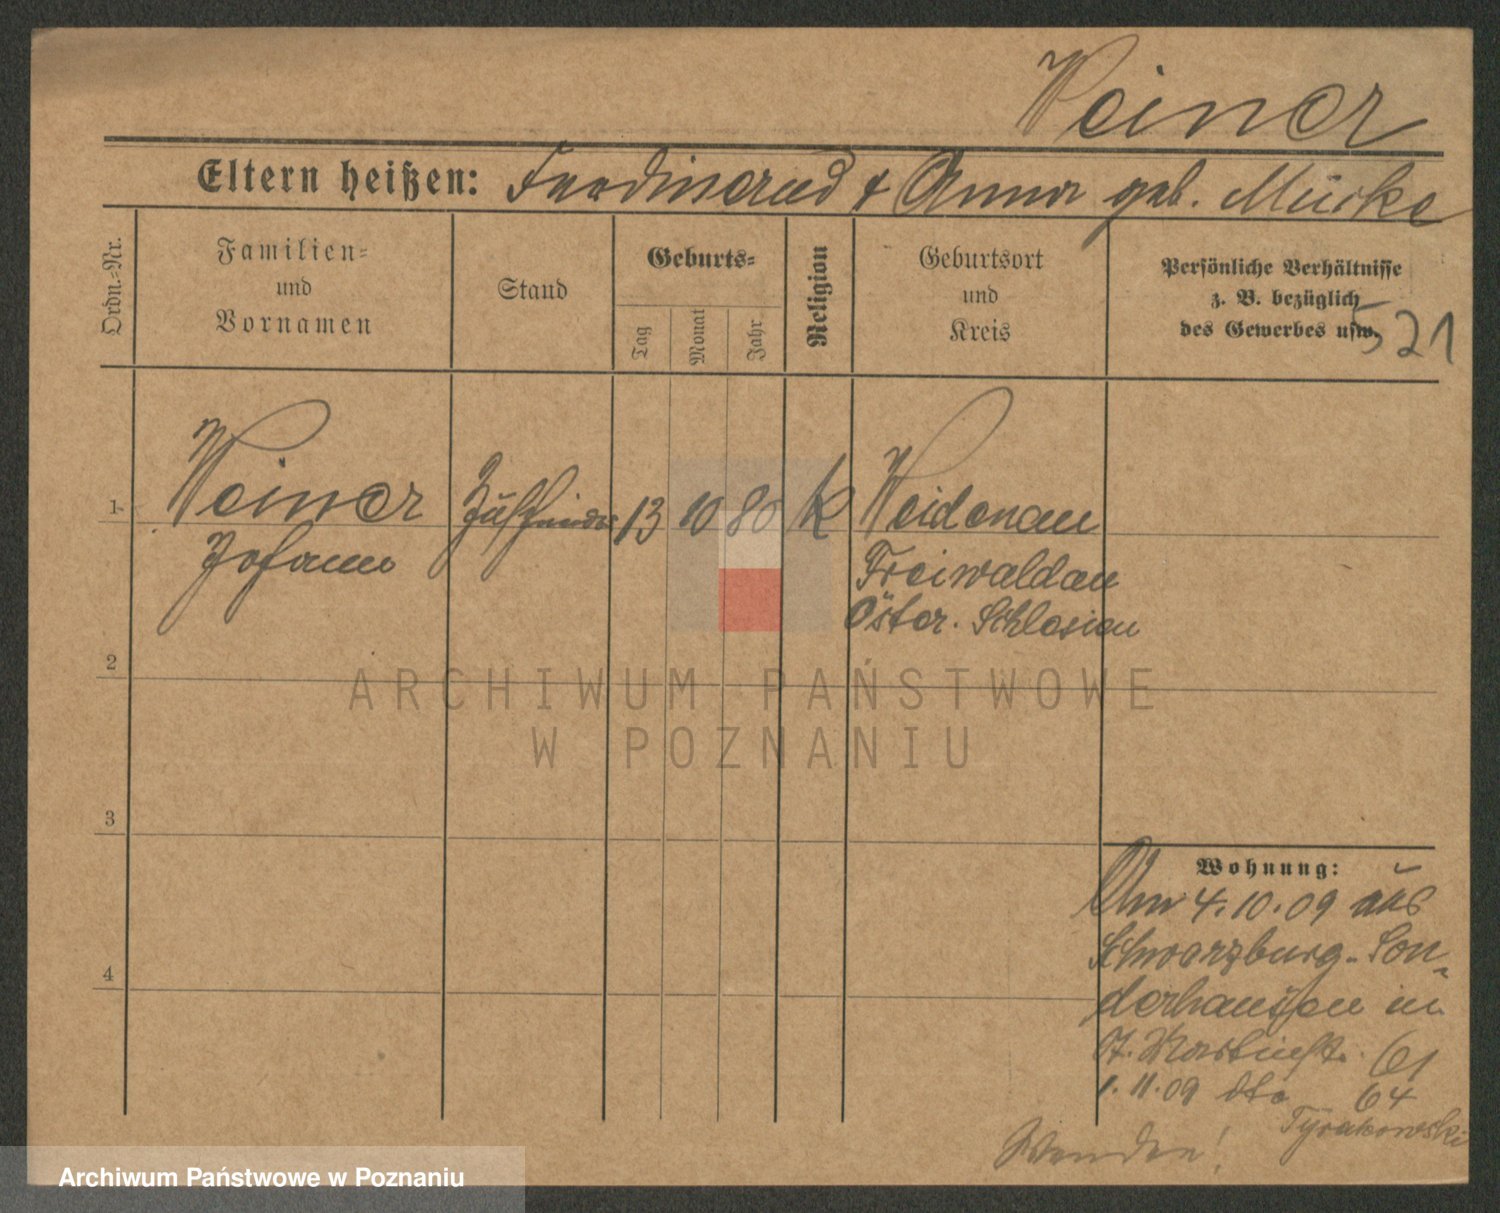 Weiner
Eltern heißen: Ferdinand & Anna geb. Mücke
Ordn.-Nr.
Familien-
und
Vornamen
Stand
Geburts-
Tag
Monat
Jahr
Religion
Geburtsort
und
Kreis
Persönliche Verhältnisse
z. B. bezüglich
des Gewerbes usw.
521
1 Weiner 13 10 80 k Weidenau
Johann Freiwaldau
Öster. Schlesien
2
3
4
Wohnung:
Am 4.10.09 aus
Schwarzburg-Son-
derhausen in
St. Martinstr. 61
1.11.09 dto 64
Tyrakowski
Wenden!
ARCHIWUM PAŃSTWOWE
W POZNANIU
Archiwum Państwowe w Poznaniu